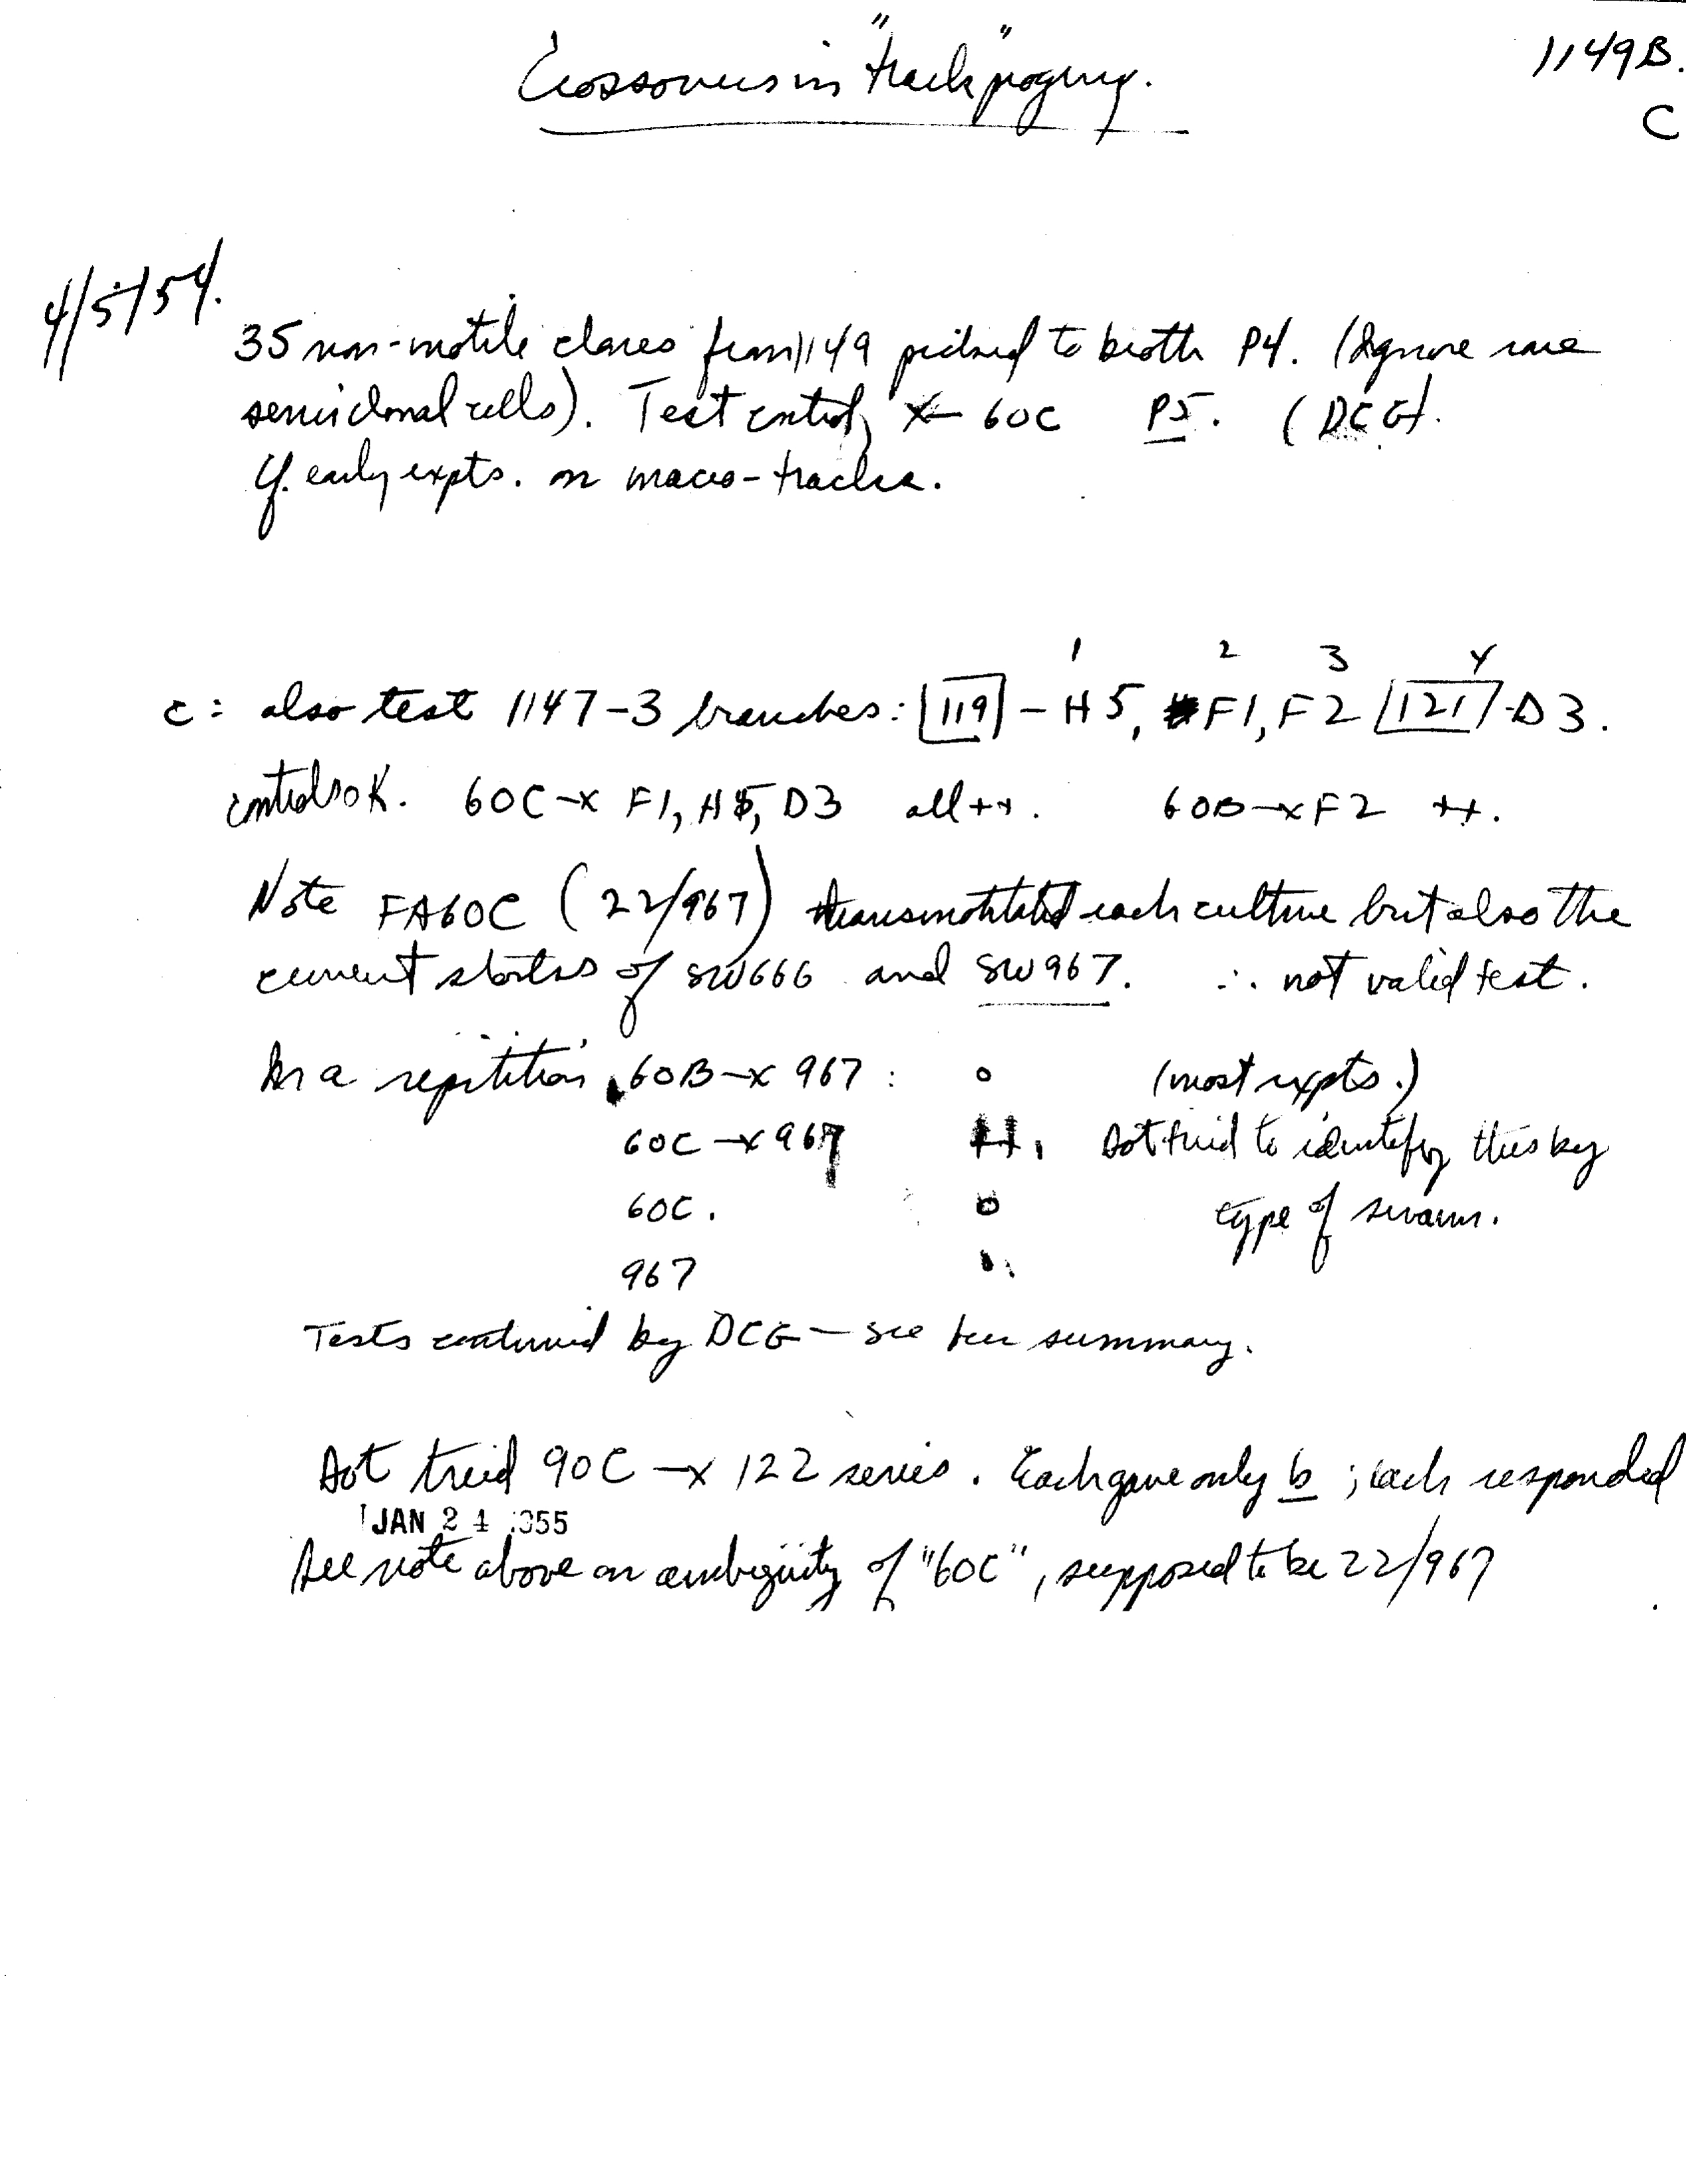 Crossovers in "track" progeny.
1149B.
C
4/5/54.
35 non-motile clones from 1149 picked to broth P4. (Ignore rare
semiclonal cells). Test control, x— 60C P5. (DCG).
Cf. early expts. on macro-tracks.
1 2 3 4
c: also test 1147-3 branches: [119] - H5, F1, F2 [121] - D3.
controls OK. 60C —x F1, H5, D3 all ++. 60B —x F2 ++.
Note FA60C (22/967) each culture but also the
current stocks of SW666 and SW967. ∴ not valid test.
In a repitition 60B —x 967 : o (most expts.)
60C —x 967 ++. Dot tried to identify this by
60C. o type of swarm.
967
Tests continued by DCG — see her summary.
Dot tried 90C —x 122 series. Each gave only b ; each responded
JAN 24 1955
See note above on ambiguity of "60C", supposed to be 22/967